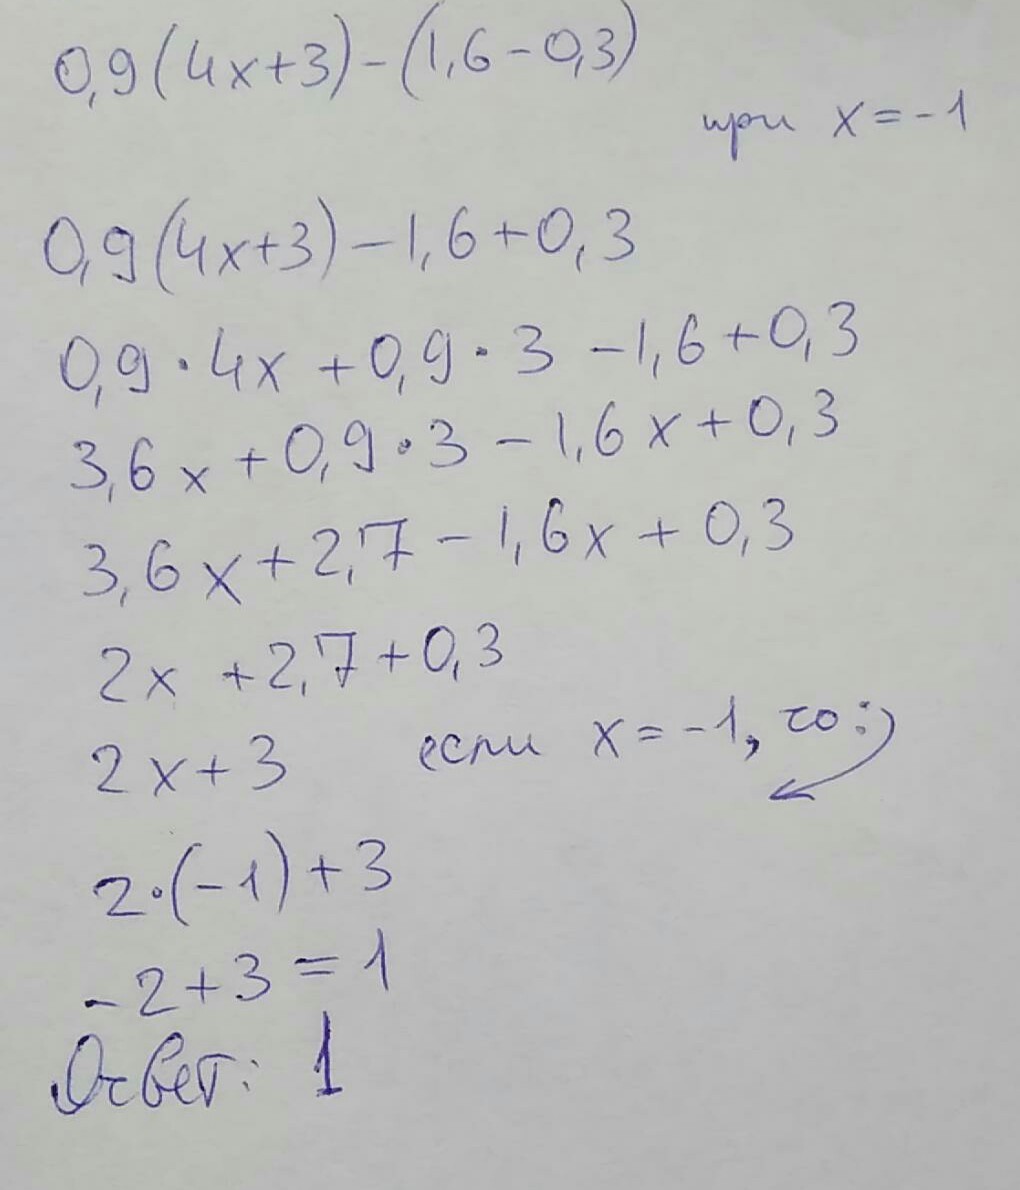 0,9(4x+3)-(1,6-0,3)
при x=-1
0,9(4x+3)-1,6+0,3
0,9·4x+0,9·3-1,6+0,3
3,6x+0,9·3-1,6x+0,3
3,6x+2,7-1,6x+0,3
2x+2,7+0,3
2x+3 если x=-1, то:
2·(-1)+3
-2+3=1
Ответ: 1